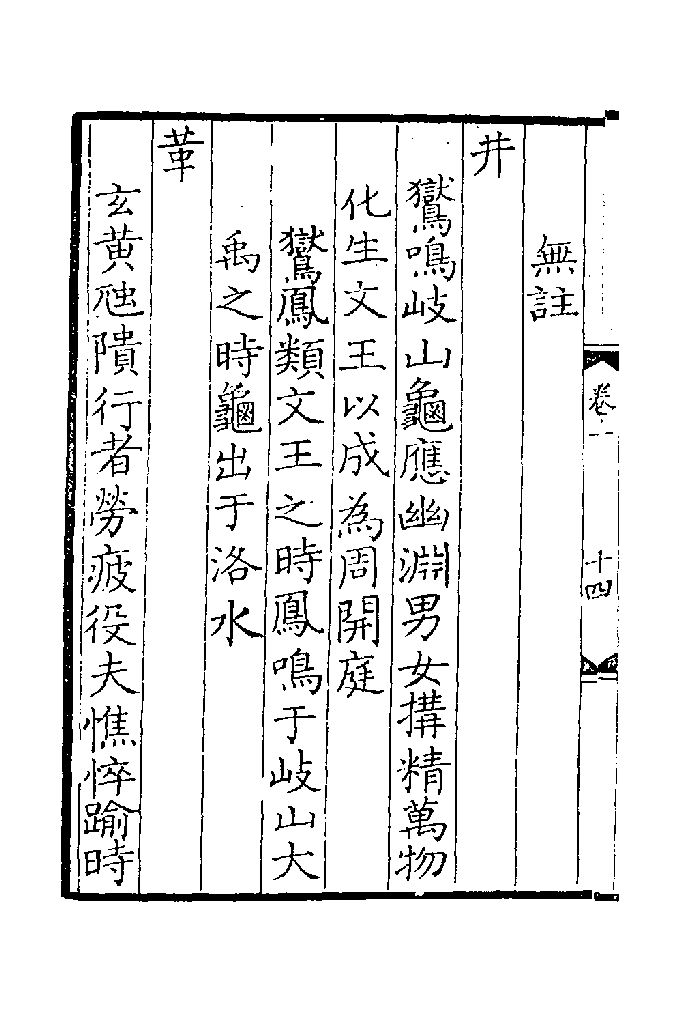 無註
井
鸑鳴岐山龜應幽淵男女搆精萬物
化生文王以成為周開庭
鸑鳳類文王之時鳳鳴于岐山大
禹之時龜出于洛水
革
玄黄虺隤行者勞疲役夫憔悴踰時
卷十一
十四